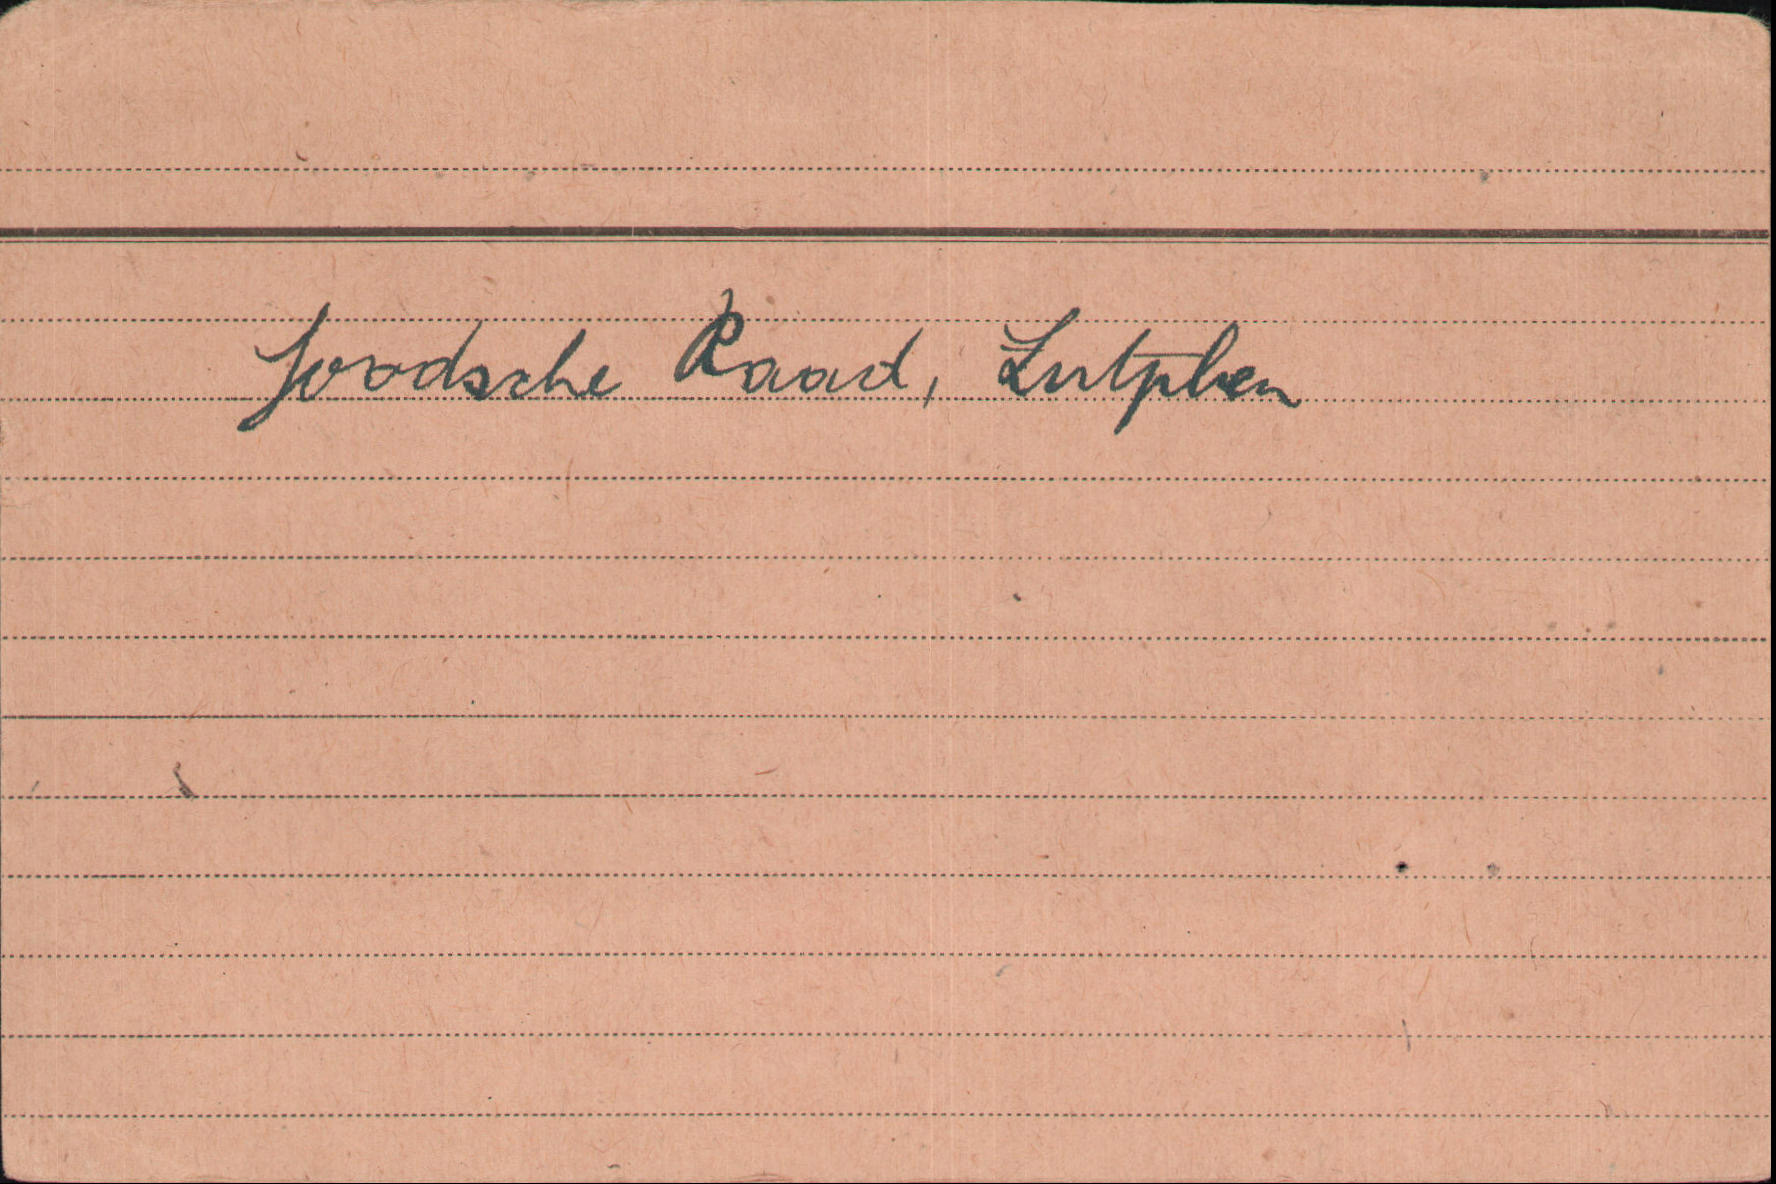 Joodsche Raad, Zutphen